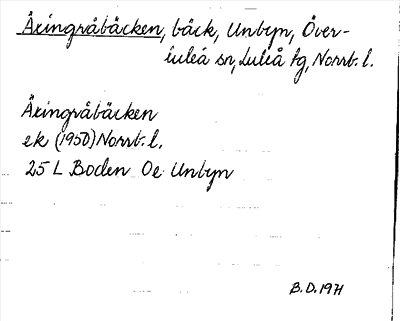 Äxingråbäcken, bäck, Unbyn, Över-
luleå sn, Luleå tg, Norrb. l.
Äxingråbäcken
ek (1950) Norrb. l.
25 L Boden Oe Unbyn
B.D. 1971